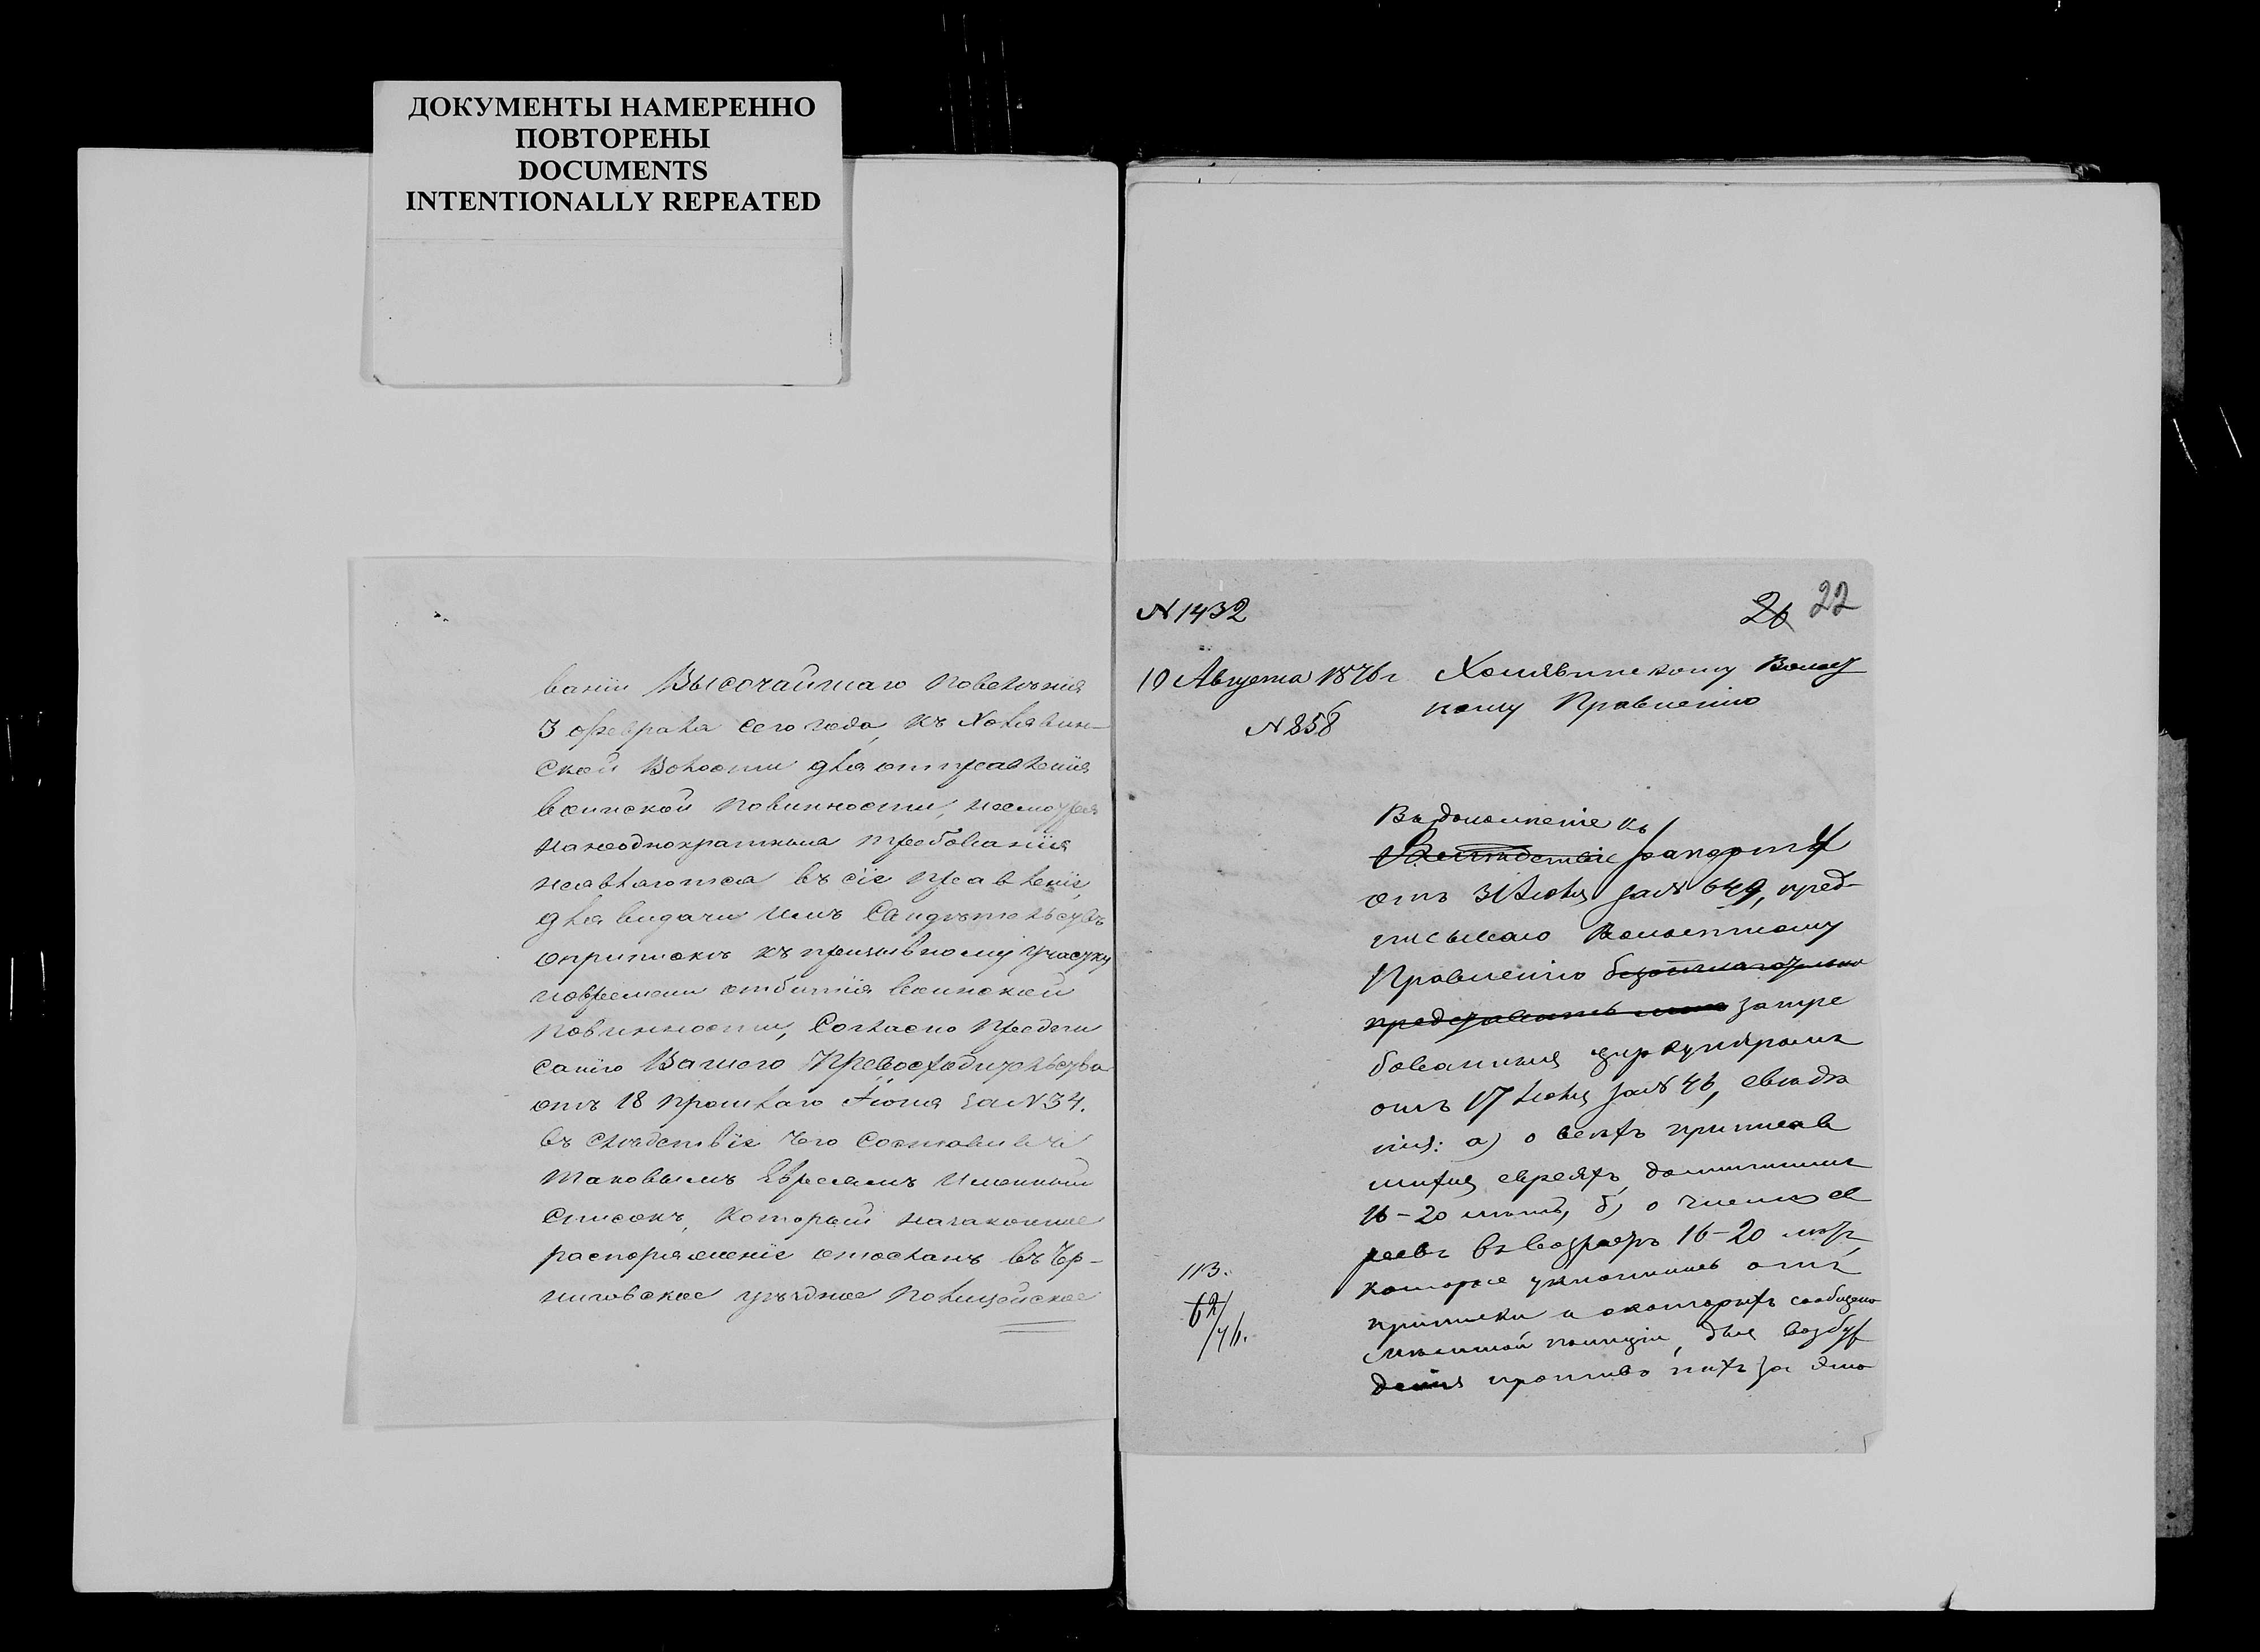 ДОКУМЕНТЫ НАМЕРЕННО
ПОВТОРЕНЫ
DOCUMENTS
INTENTIONALLY REPEATED
ваніи Высочайшаго повелѣнія
3 февраля сего года, къ Холявин-
ской Волости для отправленія
воинской повинности, несмотря
нанеоднократныя требованія
неявляются въ сіе правленіе,
для выдачи имъ Свидѣтельствъ
оприпискѣ къ призывному участку
повремени отбытія воинской
повинности, Согласно предпи
санію Вашего Превосходительства
отъ 18 прошлаго Іюня за N 34.
въ слѣдствіе чего Составивъ
таковымъ Евреямъ Именный
Списокъ, который назаконное
распоряженіе отосланъ въ Чер-
ниговское уѣздное полицейское
N 1432
26 22
10 Августа 1876 г Холявинскому Волост
ному Правленію
N 858
Въ дополненіе къ
Вслѣдствіе рапорту
отъ 31 Іюля за N 649, пред-
писываю Волостному
Правленію безотлагательно
представить мнѣ затре
бованныя циркуляромъ
отъ 17 Іюля за N 46, свѣдѣ
нія: а) о всѣхъ приписав
шихся евреяхъ, достигшихъ
16-20 лѣтъ, б) о числѣ ев
реевъ въ возрастѣ 16-20 лѣтъ,
которые уклонились отъ
приписки и окоторыхъ сообщено
мѣстной полиціи, для возбуж
денія противъ нихъ за это
113.
62/76.